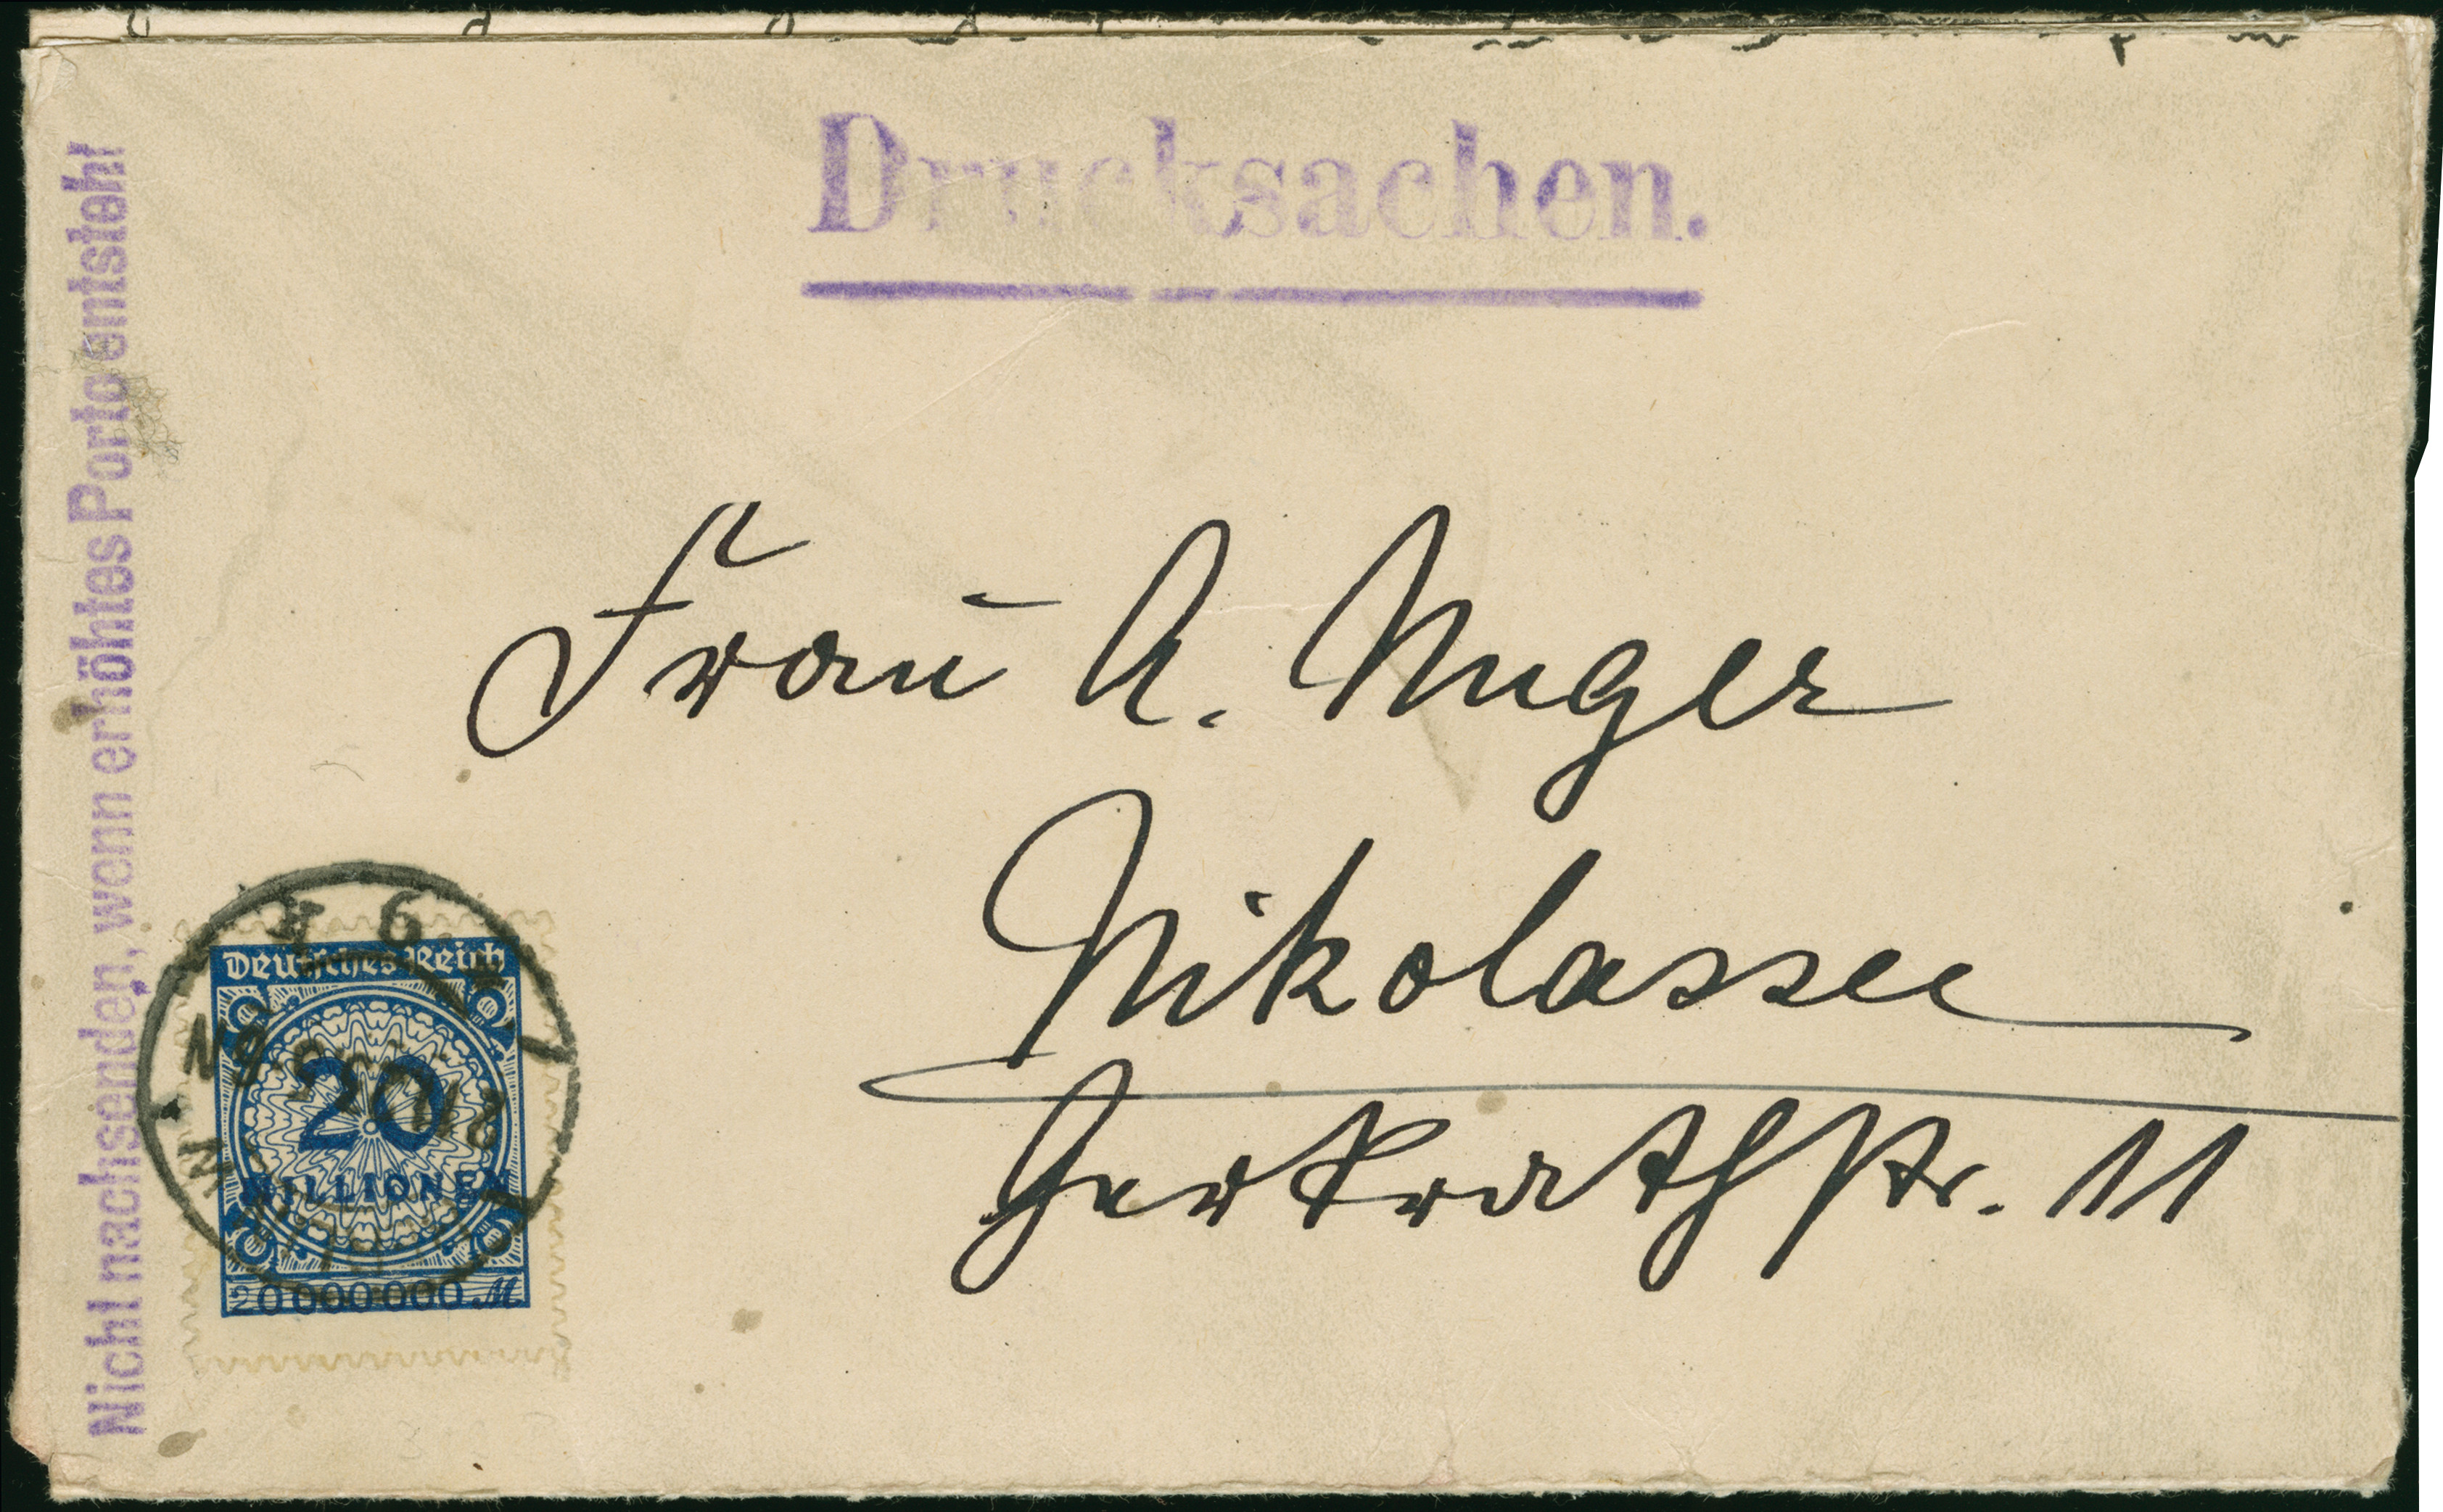 Drucksachen.
Nicht nachsenden, wenn erhöhtes Porto entsteht
Frau A. Unger
Nikolassee
Gerkrathstr. 11
Deutsches Reich
20
MILLIONEN
20 000 000 M